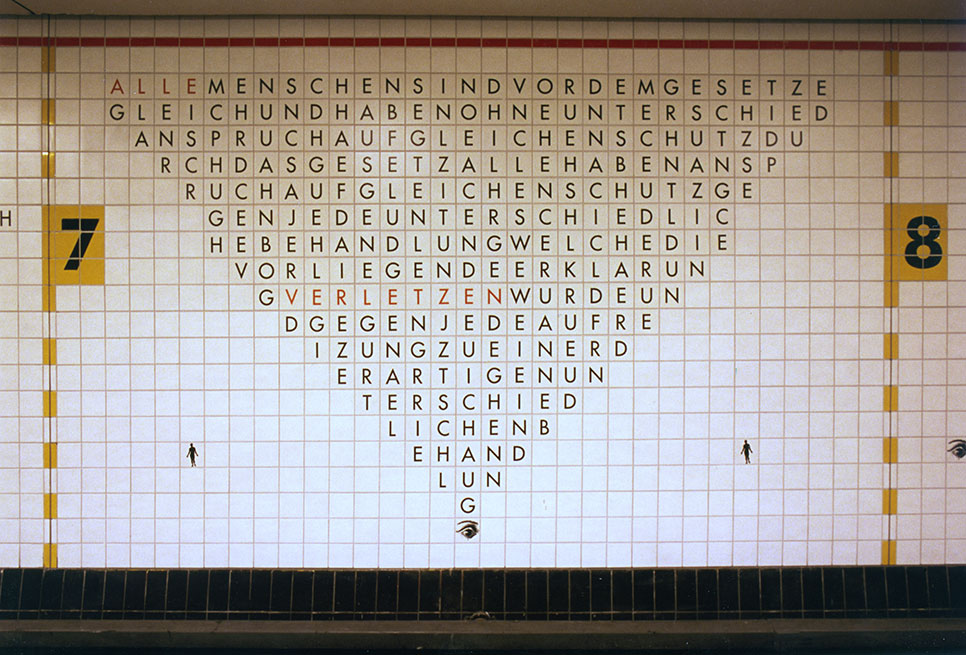 ALLEMENSCHENSINDVORDEMGESETZE
GLEICHUNDHABENOHNEUNTERSCHIED
ANSPRUCHAUFGLEICHENSCHUTZDU
RCHDASGESETZALLEHABENANSP
RUCHAUFGLEICHENSCHUTZGE
H
GENJEDEUNTERSCHIEDLIC
7
HEBEHANDLUNGWELCHEDIE
8
VORLIEGENDEERKLARUN
GVERLETZENWURDEUN
DGEGENJEDEAUFRE
IZUNGZUEINERD
ERARTIGENUN
TERSCHIED
LICHENB
EHAND
LUN
G